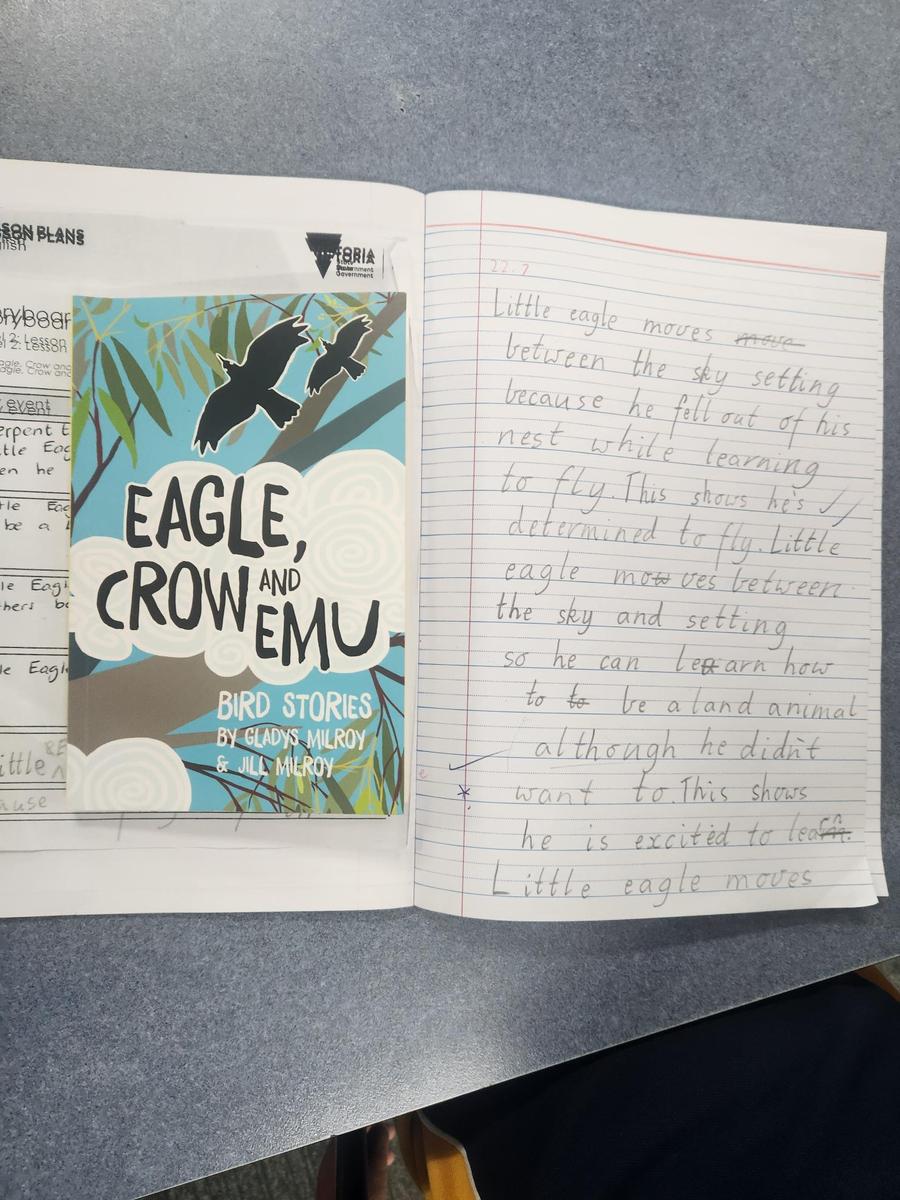 SON PLANS
glish
VICTORIA
State
Government
oryboar
el 2: Lesson
agle, Crow and
y event
erpent t
ttle Eag
en he
tle Eag
be a l
le Eagl
thers be
le Eagle
ittle ^ RE
ause
EAGLE,
CROW AND
EMU
BIRD STORIES
BY GLADYS MILROY
& JILL MILROY
22.7
Little eagle moves move
between the sky setting
because he fell out of his
nest while learning
to fly. This shows he's
determined to fly. Little
eagle mow ves between
the sky and setting
so he can lea arn how
to to be a land animal
although he didn't
e
want to. This shows
he is excited to learn.
Little eagle moves